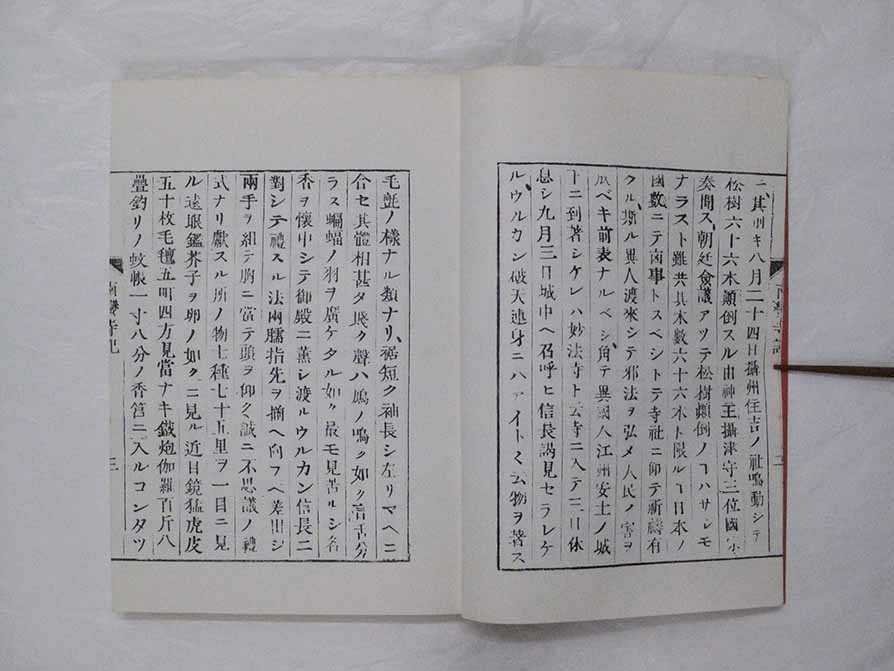 ニ、其時キ八月二十四日攝州住吉ノ社鳴動シテ
松樹六十六本顛倒スル由神主攝津守三位國
奏聞ス、朝廷僉議アツテ松樹顛倒ノヿハサシモ
ナラスト雖共其木数六十六本ト限ルヿ日本ノ
國數ニテ凶事トスベシトテ寺社ニ命テ祈禱有
クル、斯ル異人渡來シテ邪法ヲ弘メ人民ノ害ヲ
成ベキ前表ナルベシ、角テ異國人江州安土ノ城
下ニ到著シケレハ妙法寺ト云寺ニ入テ三日休
息シ九月三日城中ヘ召呼ヒ信長謁見セラレケ
ル、ウルカン破天連身ニハアイトミ云物ヲ著ス
南蠻寺記
毛氈ノ樣ナル類ナリ、裾短ク袖長シ左リマヘニ
合セ其體相甚タ賤ク聲ハ鳩ノ鳴ク如ク言舌分
ラス蝙蝠ノ羽ヲ廣ケタル如ク最モ見苦ルシ名
香ヲ懷中シテ御殿ニ薫シ渡ルウルカン信長ニ
對シテ禮スル法兩臑指先ヲ揃ヘ向フヘ差出シ
兩手ヲ組テ胸ニ當テ頭ヲ仰ク誠ニ不思議ノ禮
式ナリ獻スル所ノ物七種七十五里ヲ一目ニ見
ル遠眼鑑芥子ヲ卵ノ如クニ見ル近目鏡猛虎皮
五十枚毛氊五町四方見當ナキ鐵炮伽羅百斤八
疊釣リノ蚊帳一寸八分ノ香筥ニ入ルコンタツ
南蠻寺記
三